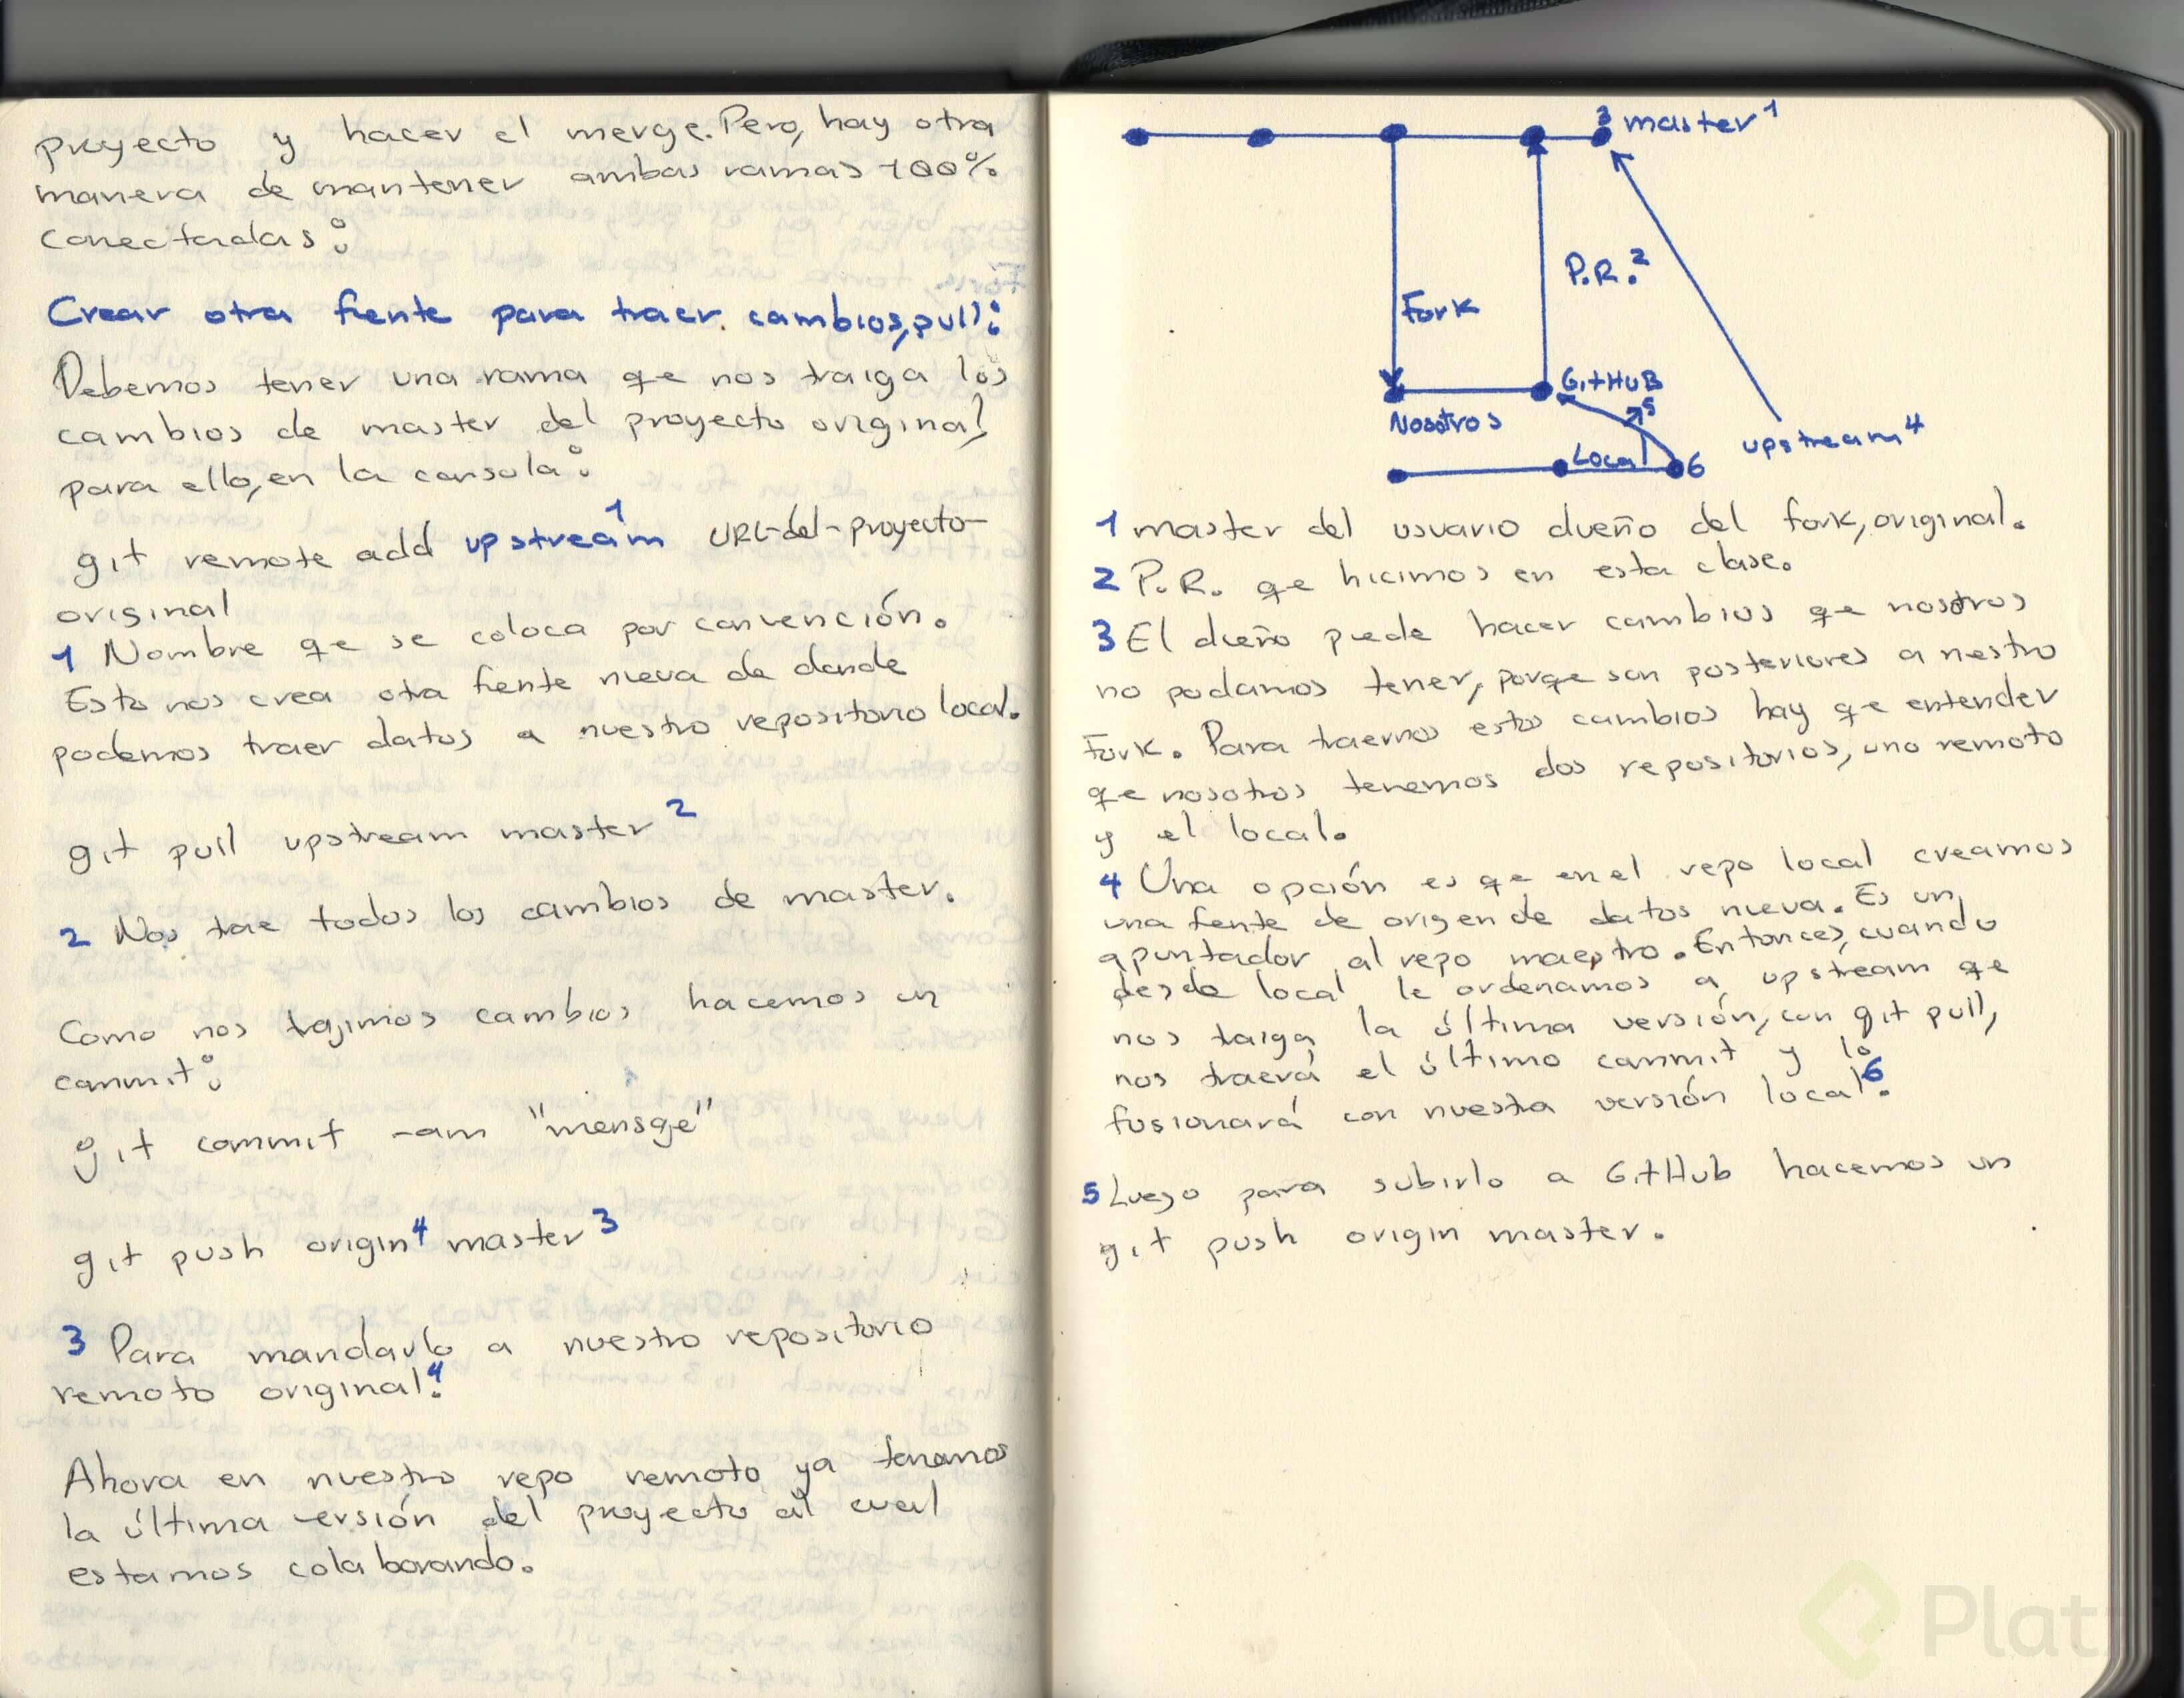 proyecto y hacer el merge. Pero, hay otra
manera de mantener ambas ramas 100%
conectadas:
Crear otra fuente para traer cambios, pull:
Debemos tener una rama qe nos traiga los
cambios de master del proyecto original,
para ello, en la consola:
git remote add upstream¹ URL-del-proyecto-
original
1 Nombre qe se coloca por convención.
Esto nos crea otra fuente nueva de donde
podemos traer datos a nuestro repositorio local.
git pull upstream master²
2 Nos trae todos los cambios de master.
Como nos trajimos cambios hacemos un
commit:
git commit -am "mensge"
git push origin⁴ master³
3 Para mandarlo a nuestro repositorio
remoto original⁴.
Ahora en nuestro repo remoto ya tenemos
la última versión del proyecto al cual
estamos colaborando.
3 master¹
P.R.²
Fork
GitHUB
5
Nosotros
upstream⁴
Local 6
1 master del usuario dueño del fork, original.
2 P.R. qe hicimos en esta clase.
3 El dueño puede hacer cambios qe nosotros
no podamos tener, porqe son posteriores a nuestro
Fork. Para traernos estos cambios hay qe entender
qe nosotros tenemos dos repositorios, uno remoto
y el local.
4 Una opción es qe en el repo local creamos
una fuente de origen de datos nueva. Es un
apuntador al repo maestro. Entonces, cuando
desde local le ordenamos a upstream qe
nos traiga la última versión, con git pull,
nos traerá el último commit y lo
fusionará con nuestra versión local⁶.
5 Luego para subirlo a GitHub hacemos un
git push origin master.
Platz